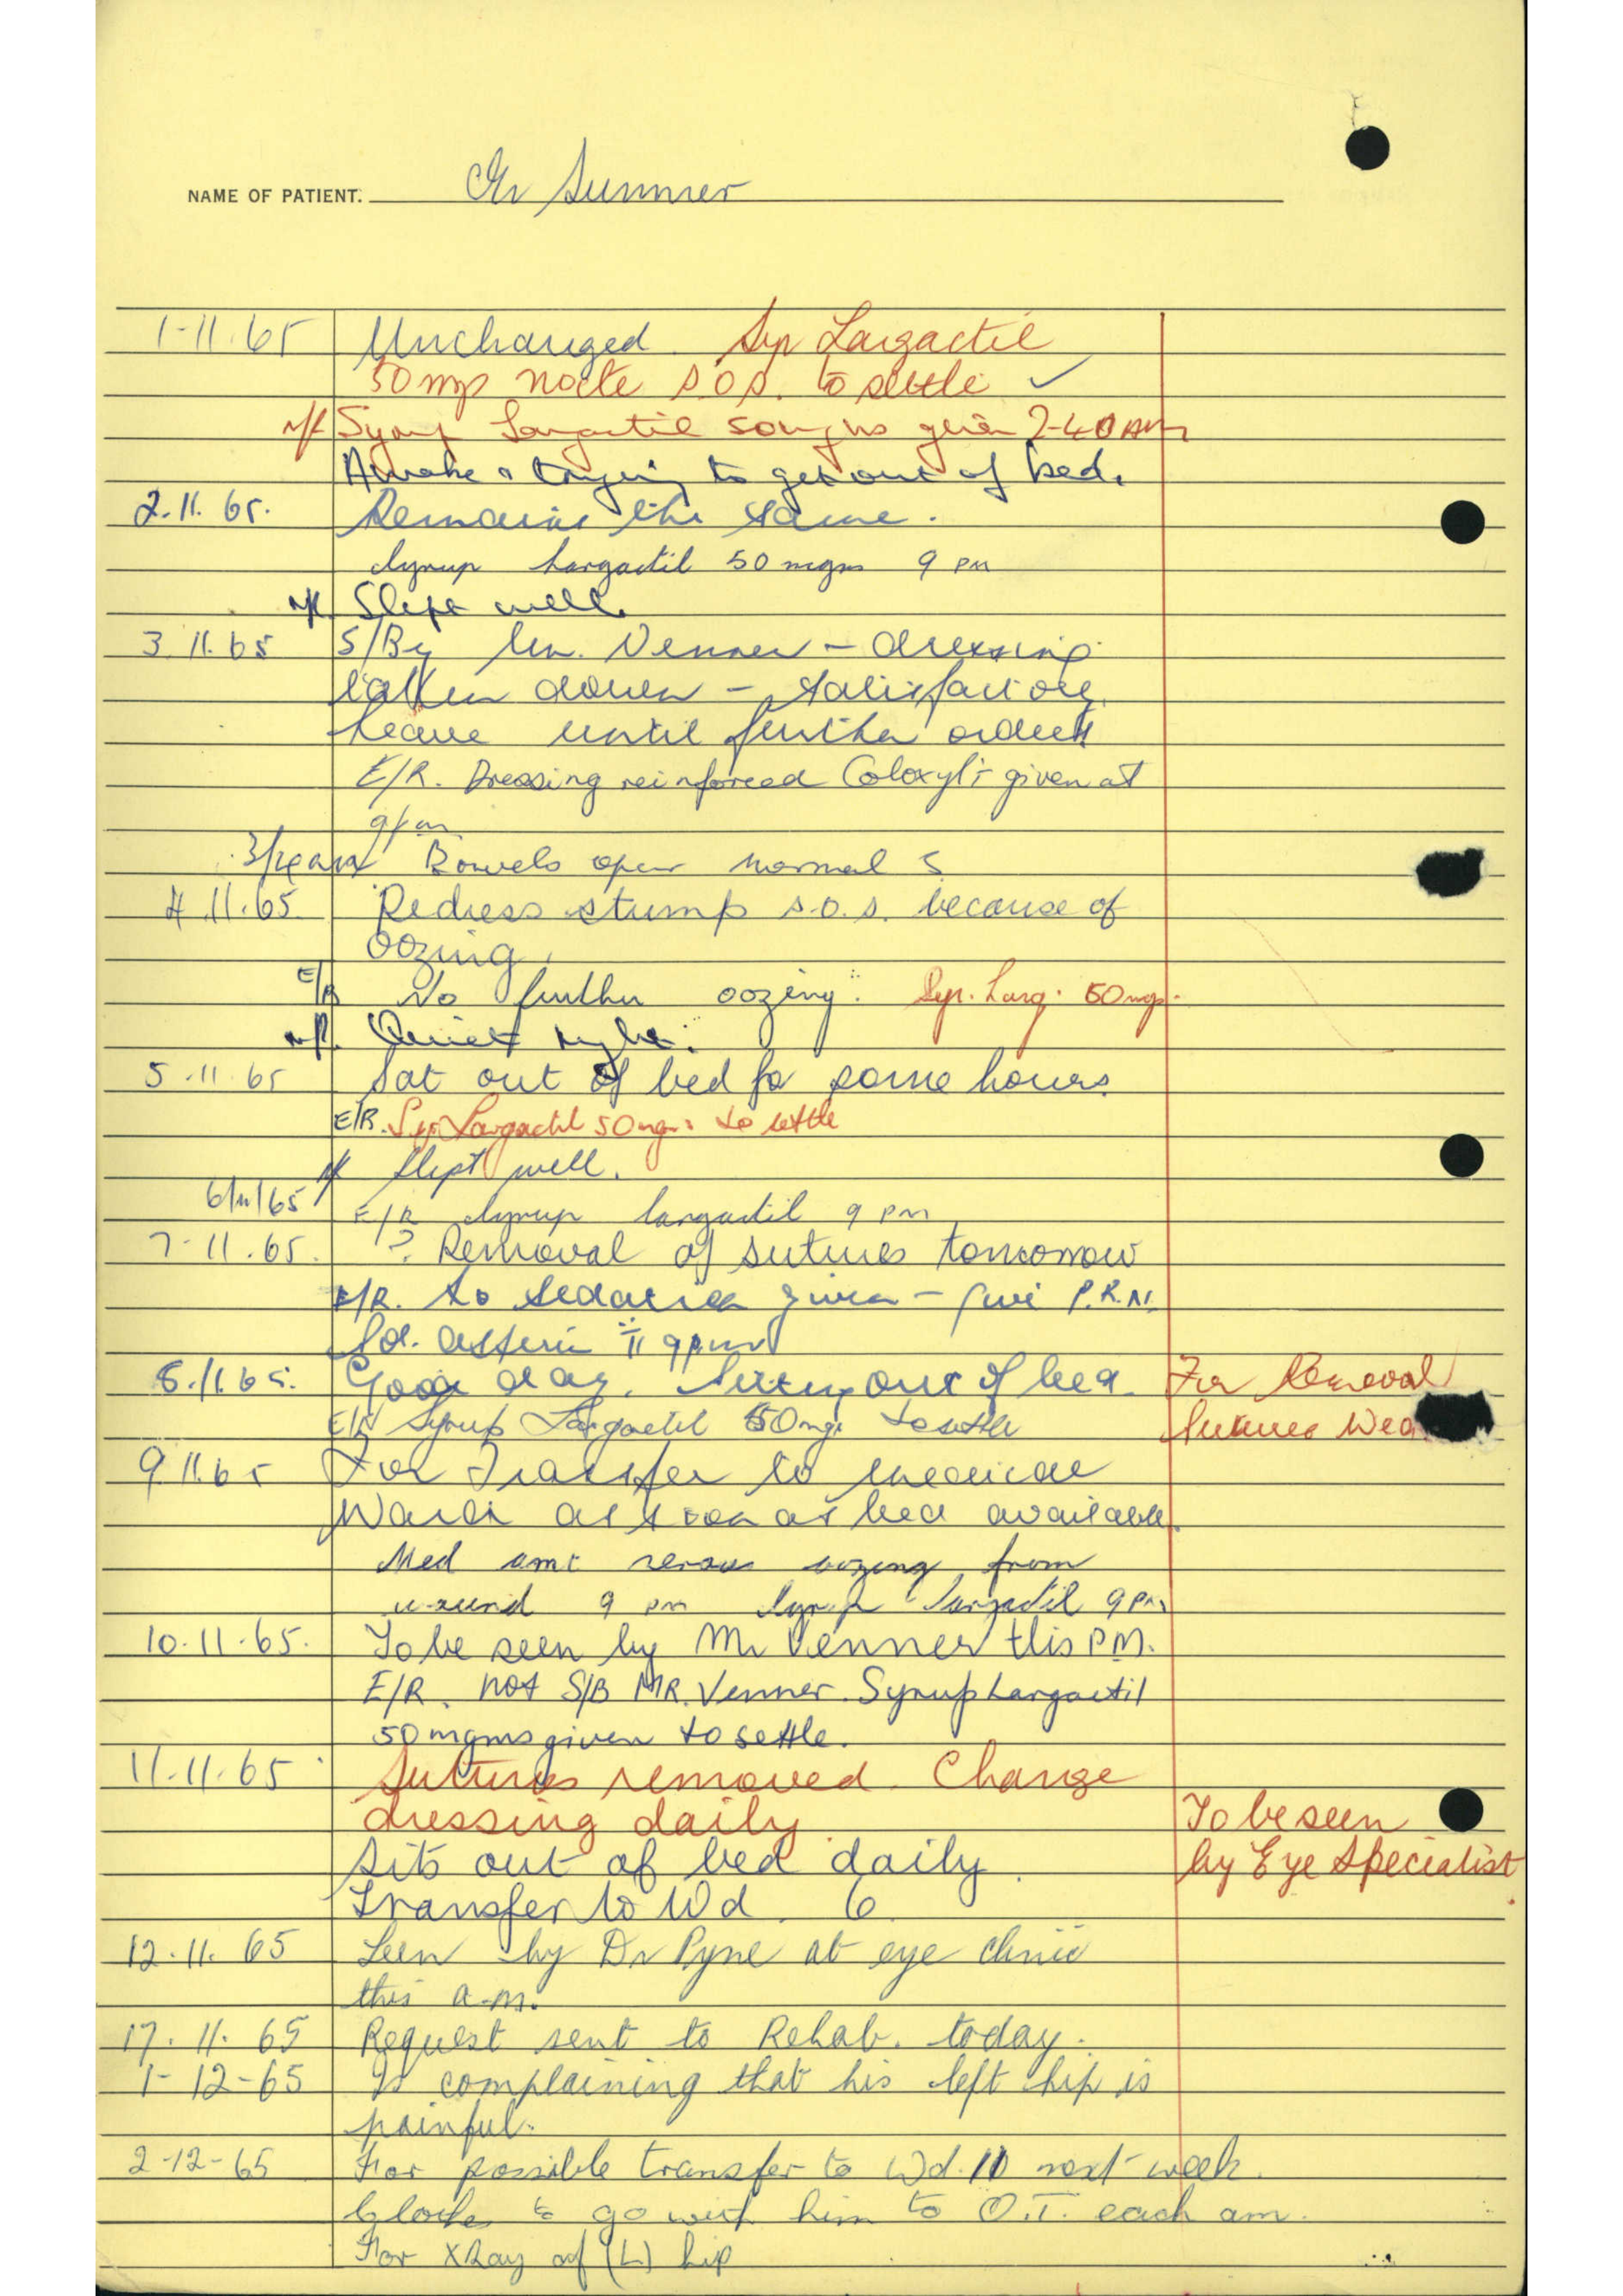 NAME OF PATIENT. Mr Sumner
1-11.65 Unchanged. Syr Largactil
50mg nocte s.o.s. to settle ✓
N/R Syrup Largactil 50mgms given 2-40 AM
Awake & trying to get out of bed.
2.11.65. Remains the same.
Syrup Largactil 50 mgm 9 PM
N/R Slept well.
3.11.65 S/By Mr. Venner - dressing
taken down - satisfactory
Leave until further orders
E/R. Dressing reinforced Coloxyl given at
9pm
Bowels open normal
4.11.65 Redress stump s.o.s. because of
oozing.
E/R No further oozing. Syr. Larg. 50mg.
N/R. Quiet night.
5.11.65 Sat out of bed for some hours.
E/R. Syr Largactil 50mgms to settle
N/R Slept well.
6/11/65 E/R Syrup largactil 9 PM
7-11.65. ? Removal of sutures tomorrow
E/R. No sedation given - give P.R.N.
Sol. Aspirin ii 9pm
8.11.65. Good day. Sitting out of bed. For Removal
E/R Syrup Largactil 50mgs to settle Sutures Wed
9.11.65 For Transfer to medical
Ward as soon as bed available.
Med amt serous oozing from
wound 9 pm Syrup Largactil 9 PM
10.11.65. To be seen by Mr Venner this P.M.
E/R. Not S/B MR. Venner. Syrup Largactil
50 mgms given to settle.
11.11.65 Sutures removed. Change
dressing daily. To be seen
Sits out of bed daily. by Eye Specialist
Transfer to Wd. 6
12.11.65 Seen by Dr Pyne at eye clinic
this a.m.
17.11.65 Request sent to Rehab. today.
1-12-65 Is complaining that his left hip is
painful.
2-12-65 For possible transfer to Wd. 10 next week.
Clothes to go with him to O.T. each am.
For XRay of (L) hip